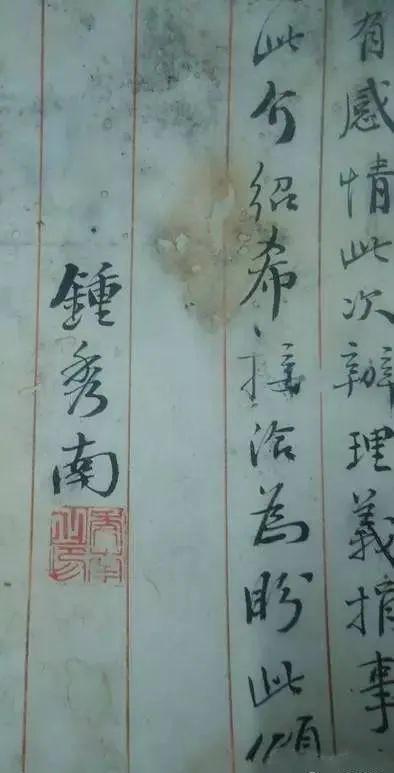 有感情此次辦理義捐事
此介紹希接洽為盼此頌
鍾秀南
秀南之印